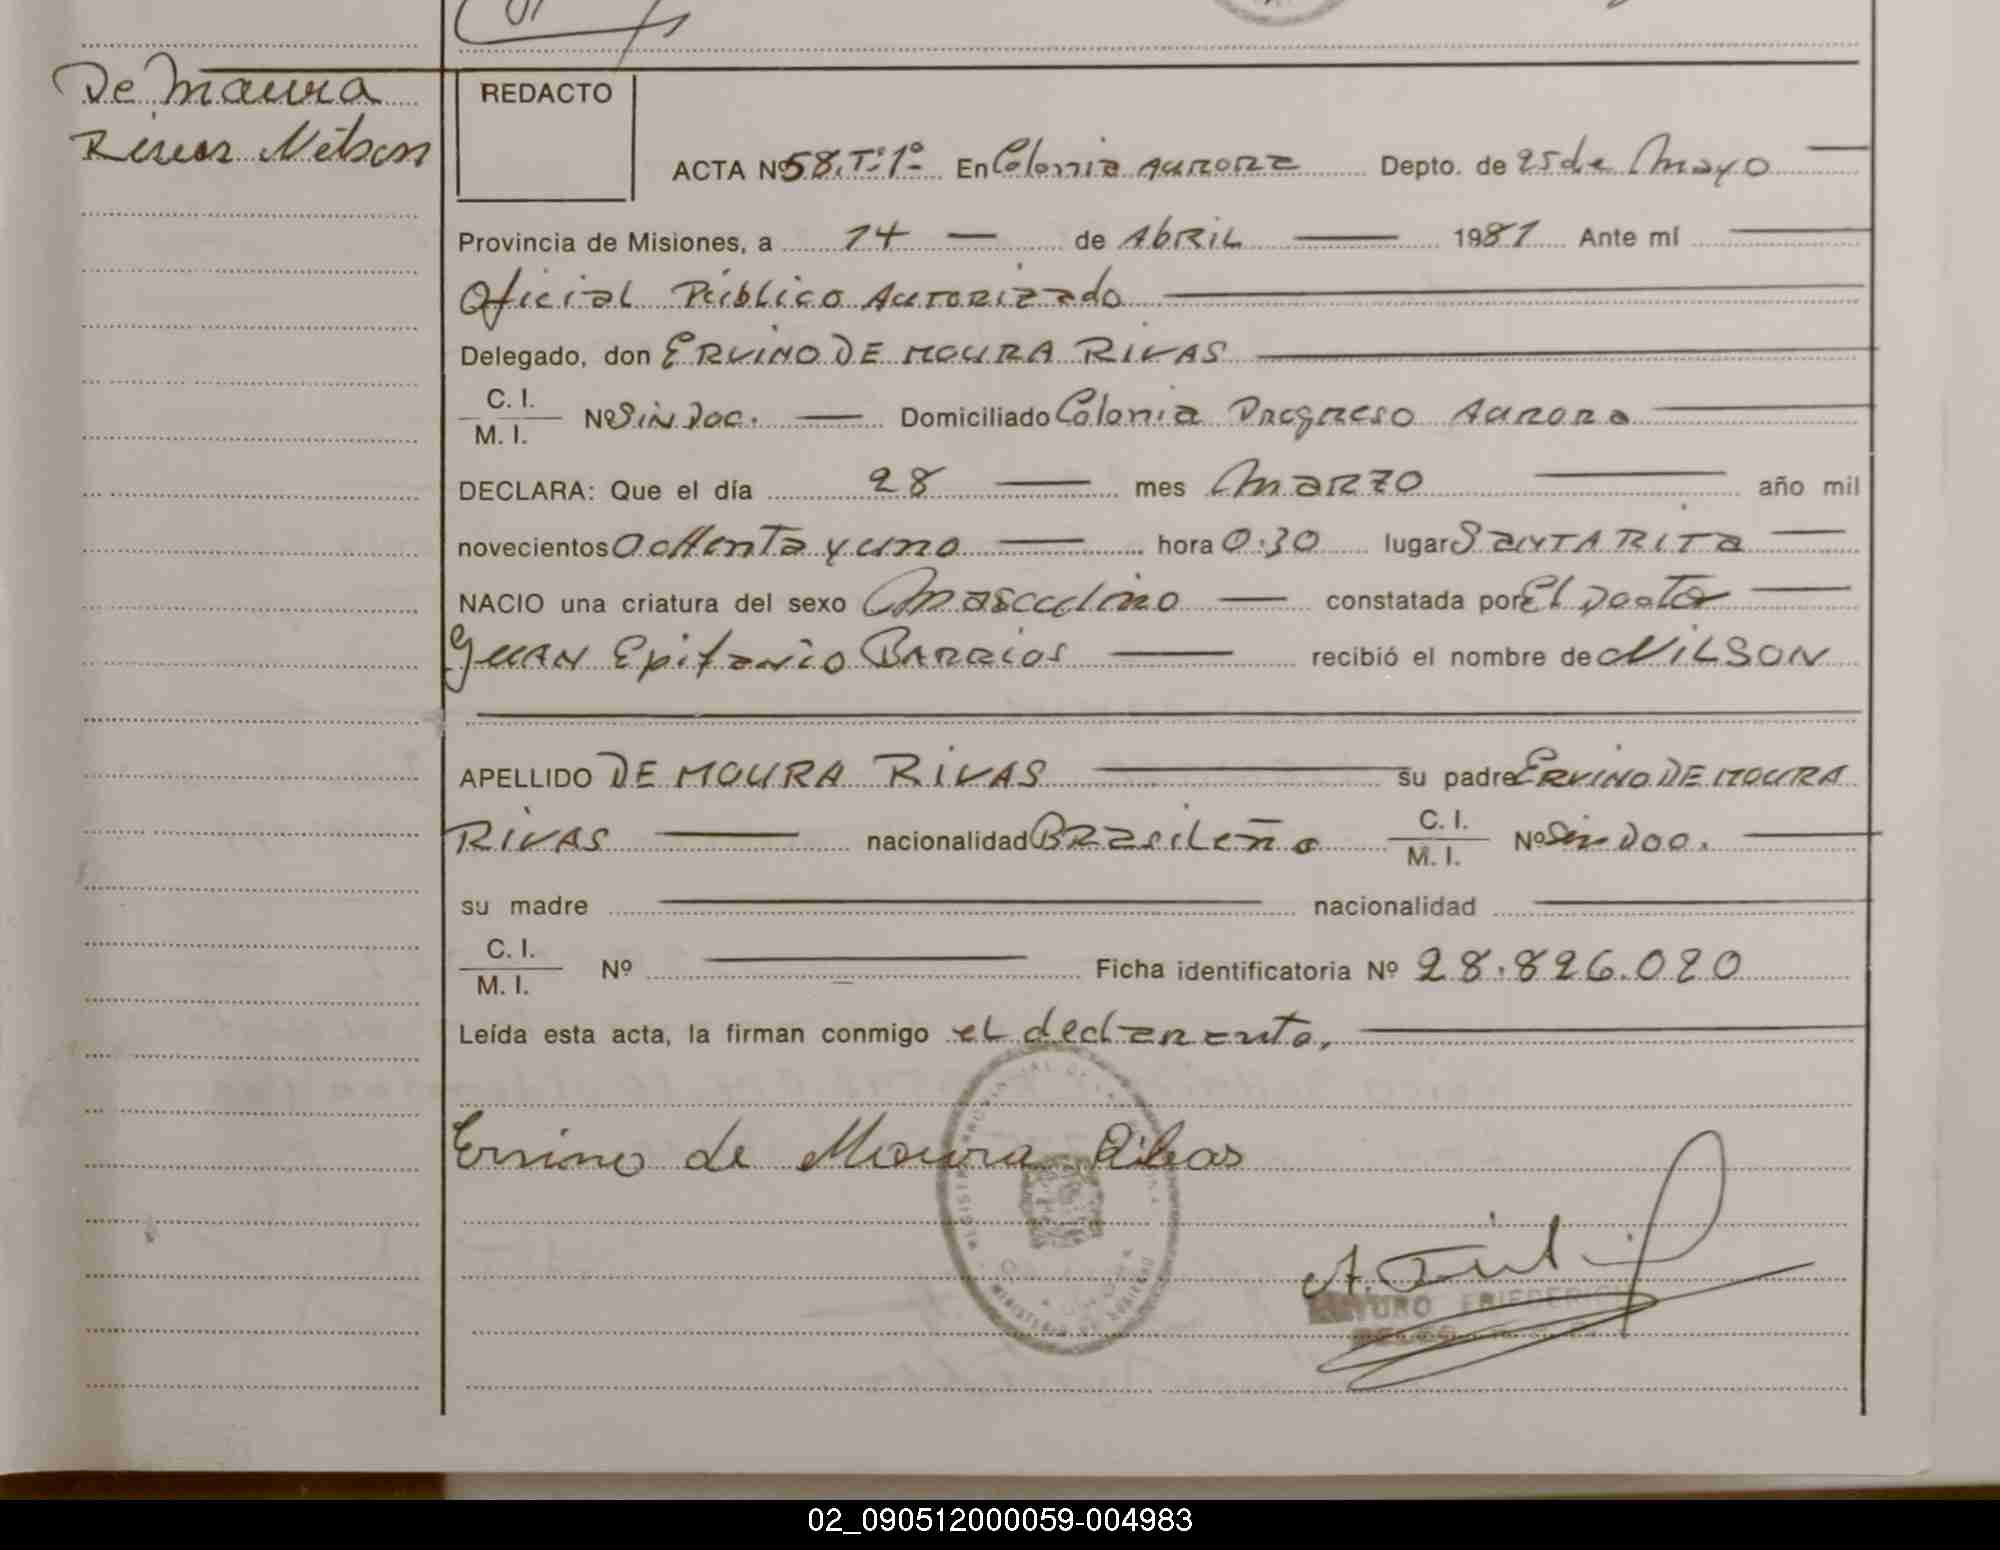 De Maura
Rivas Nilson
REDACTO
ACTA Nº 58.Tº1º En Colonia Aurora Depto. de 25 de Mayo
Provincia de Misiones, a 14 de Abril 1981 Ante mí
Oficial Público Autorizado
Delegado, don ERVINO DE MOURA RIVAS
C. I.
M. I. Nº Sin Doc. Domiciliado Colonia Progreso Aurora
DECLARA: Que el día 28 mes Marzo año mil
novecientos ochenta y uno hora 0.30 lugar Santa Rita
NACIO una criatura del sexo Masculino constatada por El Doctor
Juan Epifanio Barrios recibió el nombre de NILSON
APELLIDO DE MOURA RIVAS su padre ERVINO DE MOURA
RIVAS nacionalidad Brasileño C. I.
M. I. Nº Sin Doc.
su madre nacionalidad
C. I.
M. I. Nº Ficha identificatoria Nº 28.826.020
Leída esta acta, la firman conmigo el declarante.
Ervino de Moura Ribas
MINISTERIO DE GOBIERNO
A.
ARTURO FRIEDERICH
02_090512000059-004983